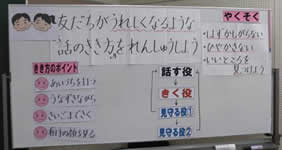 友だちがうれしくなるような
話のきき方をれんしゅうしよう
やくそく
・はずかしがらない
・ひやかさない
・いいところを
見つけよう
きき方のポイント
あいづちをうつ
うなずきながら
さいごまできく
相手の顔を見る
話す役
きく役
見守る役①
見守る役②